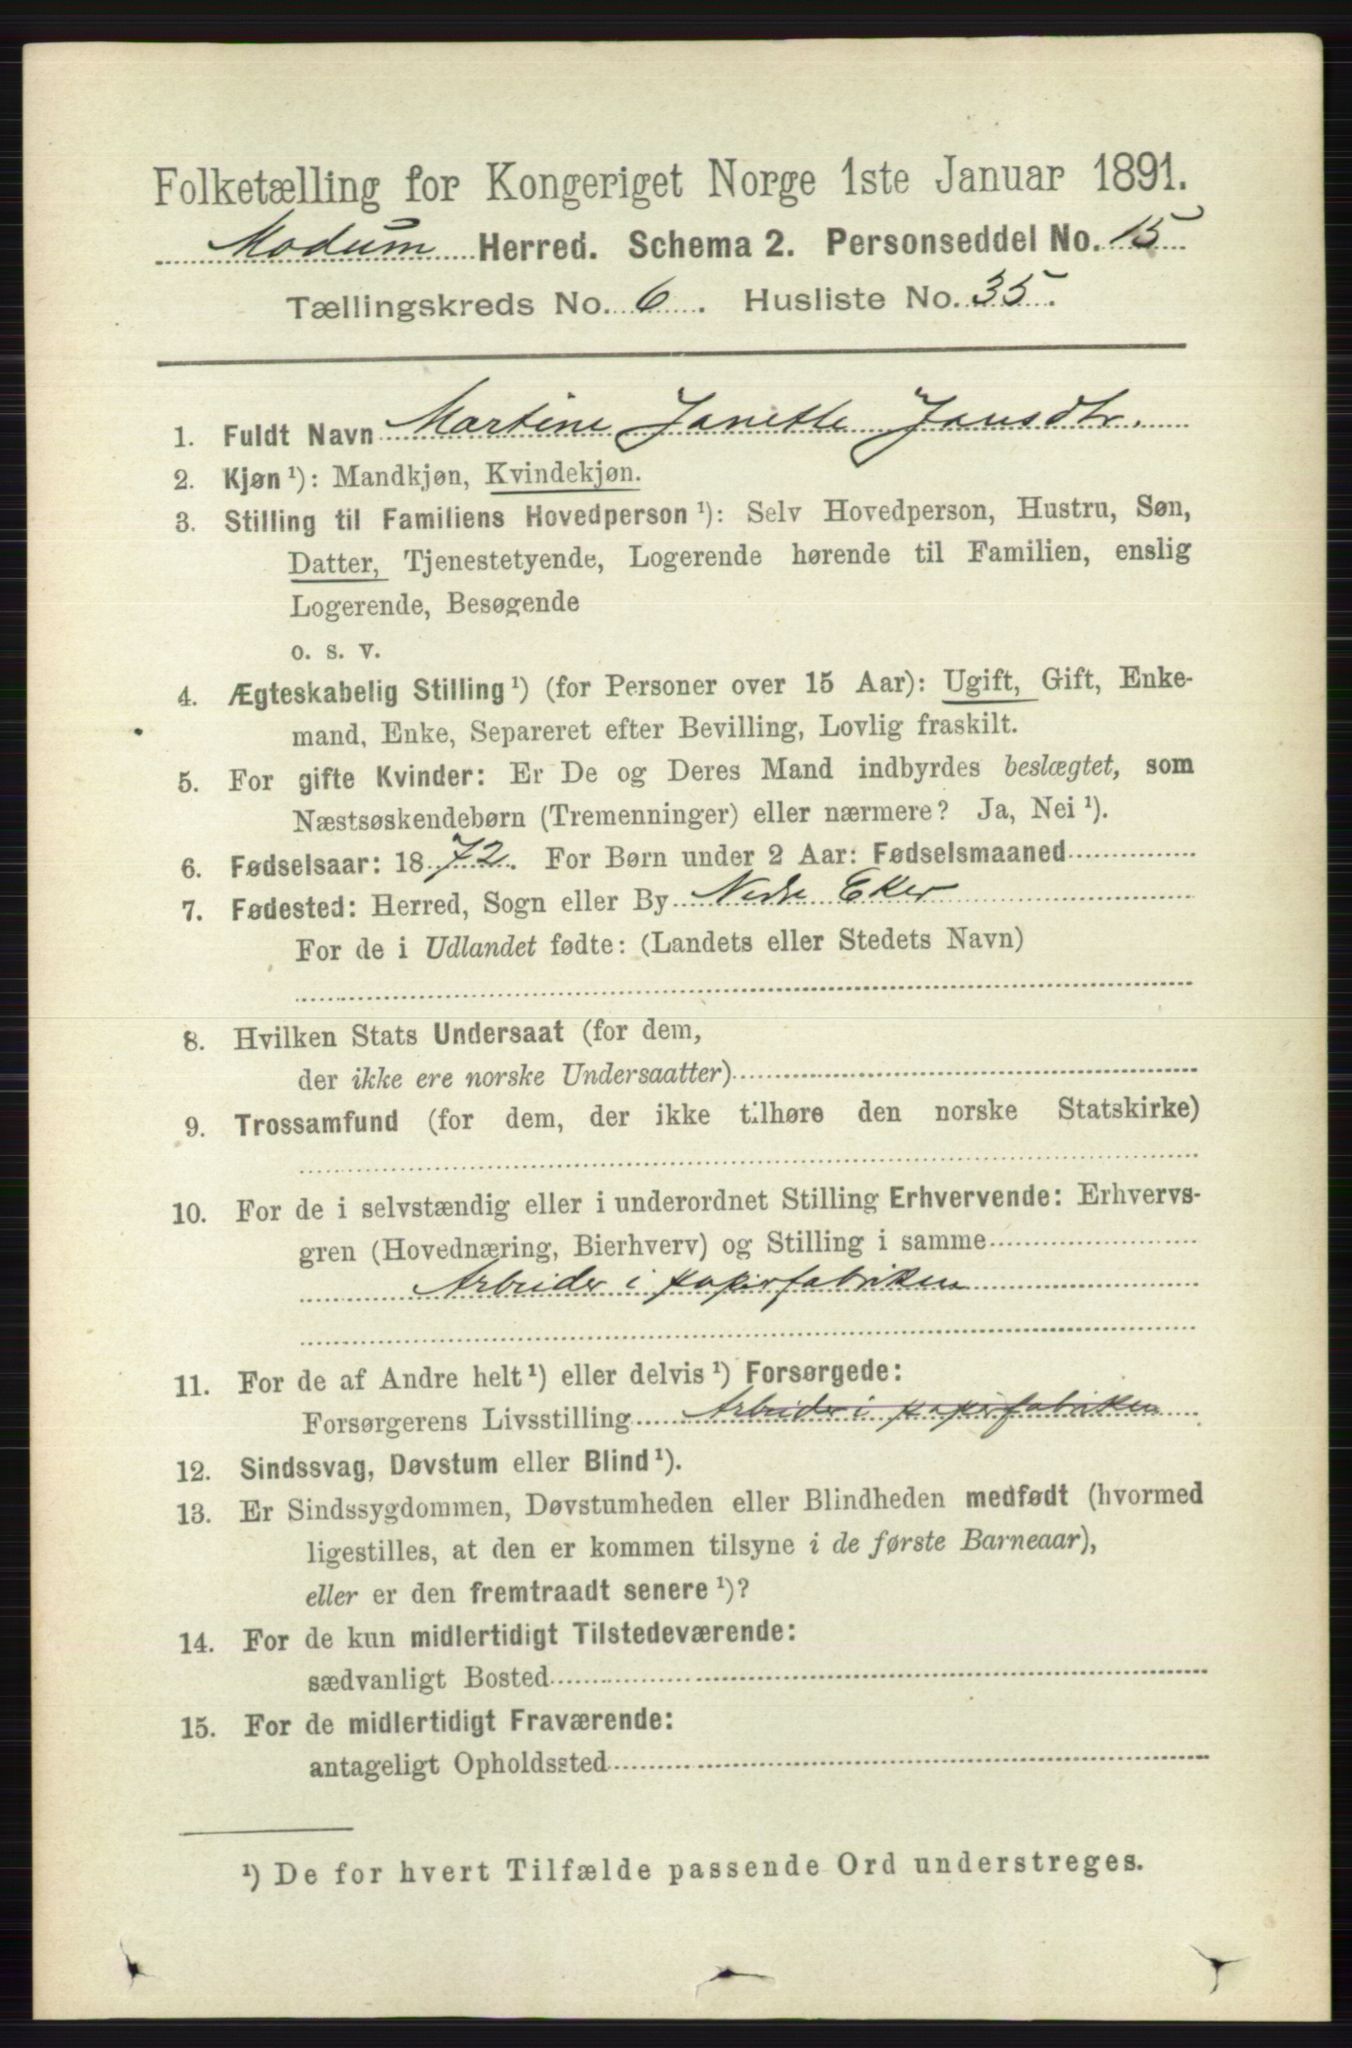 Folketælling for Kongeriget Norge 1ste Januar 1891.
Modum Herred. Schema 2. Personseddel No. 15
Tællingskreds No. 6. Husliste No. 35.
1. Fuldt Navn Martine Janette Jansdtr.
2. Kjøn ¹): Mandkjøn, Kvindekjøn.
3. Stilling til Familiens Hovedperson ¹): Selv Hovedperson, Hustru, Søn,
Datter, Tjenestetyende, Logerende hørende til Familien, enslig
Logerende, Besøgende
o. s. v.
4. Ægteskabelig Stilling ¹) (for Personer over 15 Aar): Ugift, Gift, Enke-
mand, Enke, Separeret efter Bevilling, Lovlig fraskilt.
5. For gifte Kvinder: Er De og Deres Mand indbyrdes beslægtet, som
Næstsøskendebørn (Tremenninger) eller nærmere? Ja, Nei ¹).
6. Fødselsaar: 1872. For Børn under 2 Aar: Fødselsmaaned
7. Fødested: Herred, Sogn eller By Nedre Eker
For de i Udlandet fødte: (Landets eller Stedets Navn)
8. Hvilken Stats Undersaat (for dem,
der ikke ere norske Undersaatter)
9. Trossamfund (for dem, der ikke tilhøre den norske Statskirke)
10. For de i selvstændig eller i underordnet Stilling Erhvervende: Erhvervs-
gren (Hovednæring, Bierhverv) og Stilling i samme
Arbeider i papirfabriken
11. For de af Andre helt ¹) eller delvis ¹) Forsørgede:
Forsørgerens Livsstilling Arbeider i papirfabriken
12. Sindssvag, Døvstum eller Blind ¹).
13. Er Sindssygdommen, Døvstumheden eller Blindheden medfødt (hvormed
ligestilles, at den er kommen tilsyne i de første Barneaar),
eller er den fremtraadt senere ¹)?
14. For de kun midlertidigt Tilstedeværende:
sædvanligt Bosted
15. For de midlertidigt Fraværende:
antageligt Opholdssted
¹) De for hvert Tilfælde passende Ord understreges.